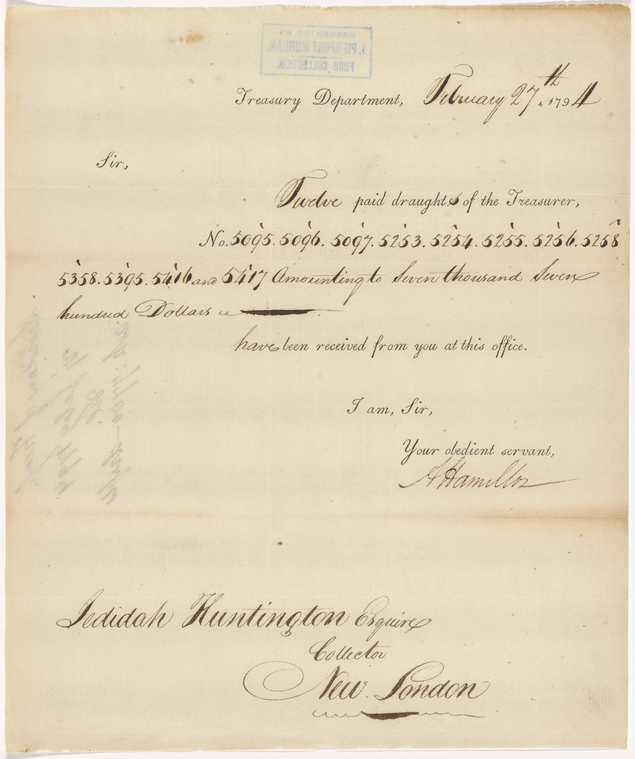 FORD COLLECTION.
J. PIERPONT MORGAN.
PRESENTED BY
Treasury Department, February 27th, 1794
Sir,
Twelve paid draughts of the Treasurer,
No. 5095. 5096. 5097. 5253. 5254. 5255. 5256. 5258
5358. 5395. 5416 and 5417 Amounting to Seven thousand Seven
hundred Dollars
have been received from you at this office.
I am, Sir,
Your obedient servant,
A Hamilton
Jedidah Huntington Esquire
Collector
New London